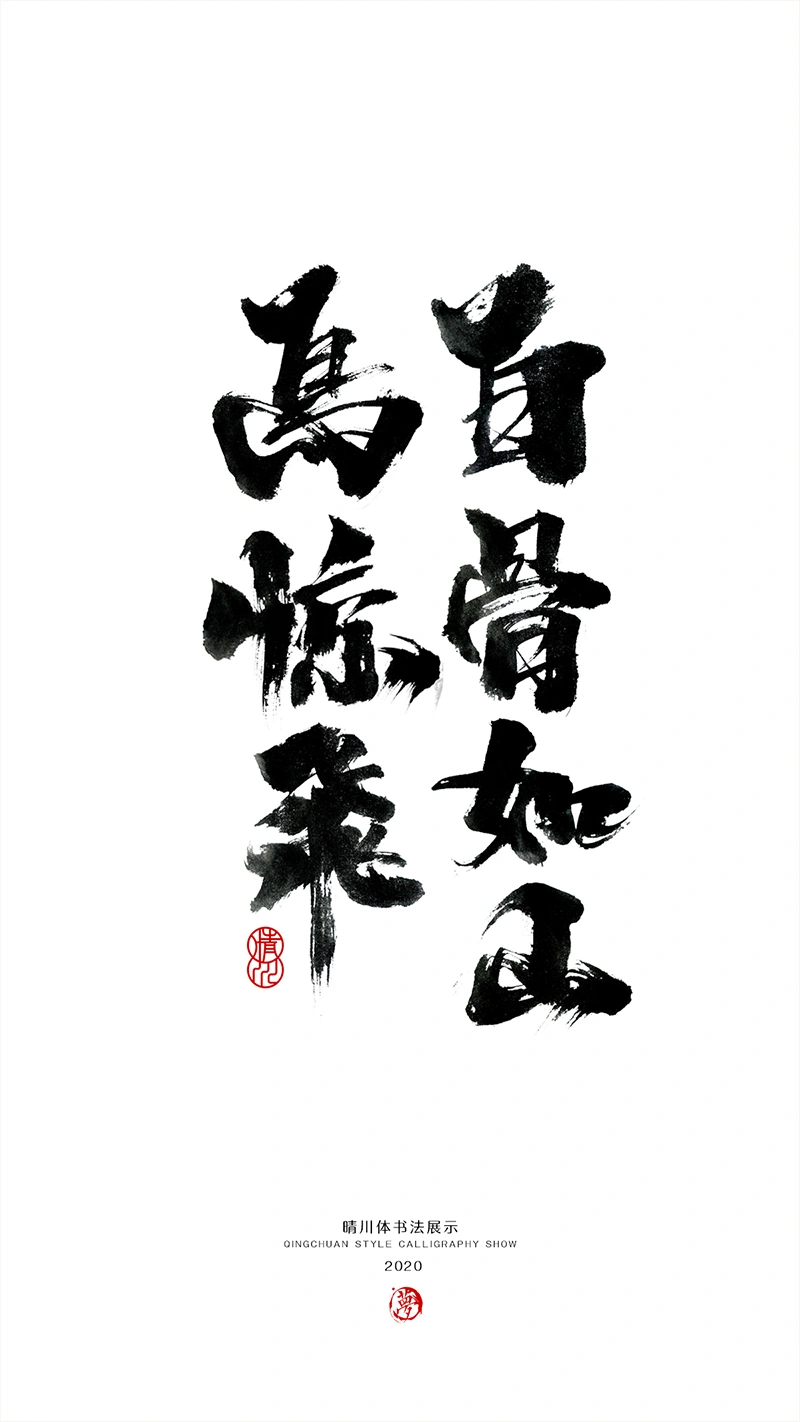 白骨如山
鸟惊飞
晴川
晴川体书法展示
QINGCHUAN STYLE CALLIGRAPHY SHOW
2020
夢